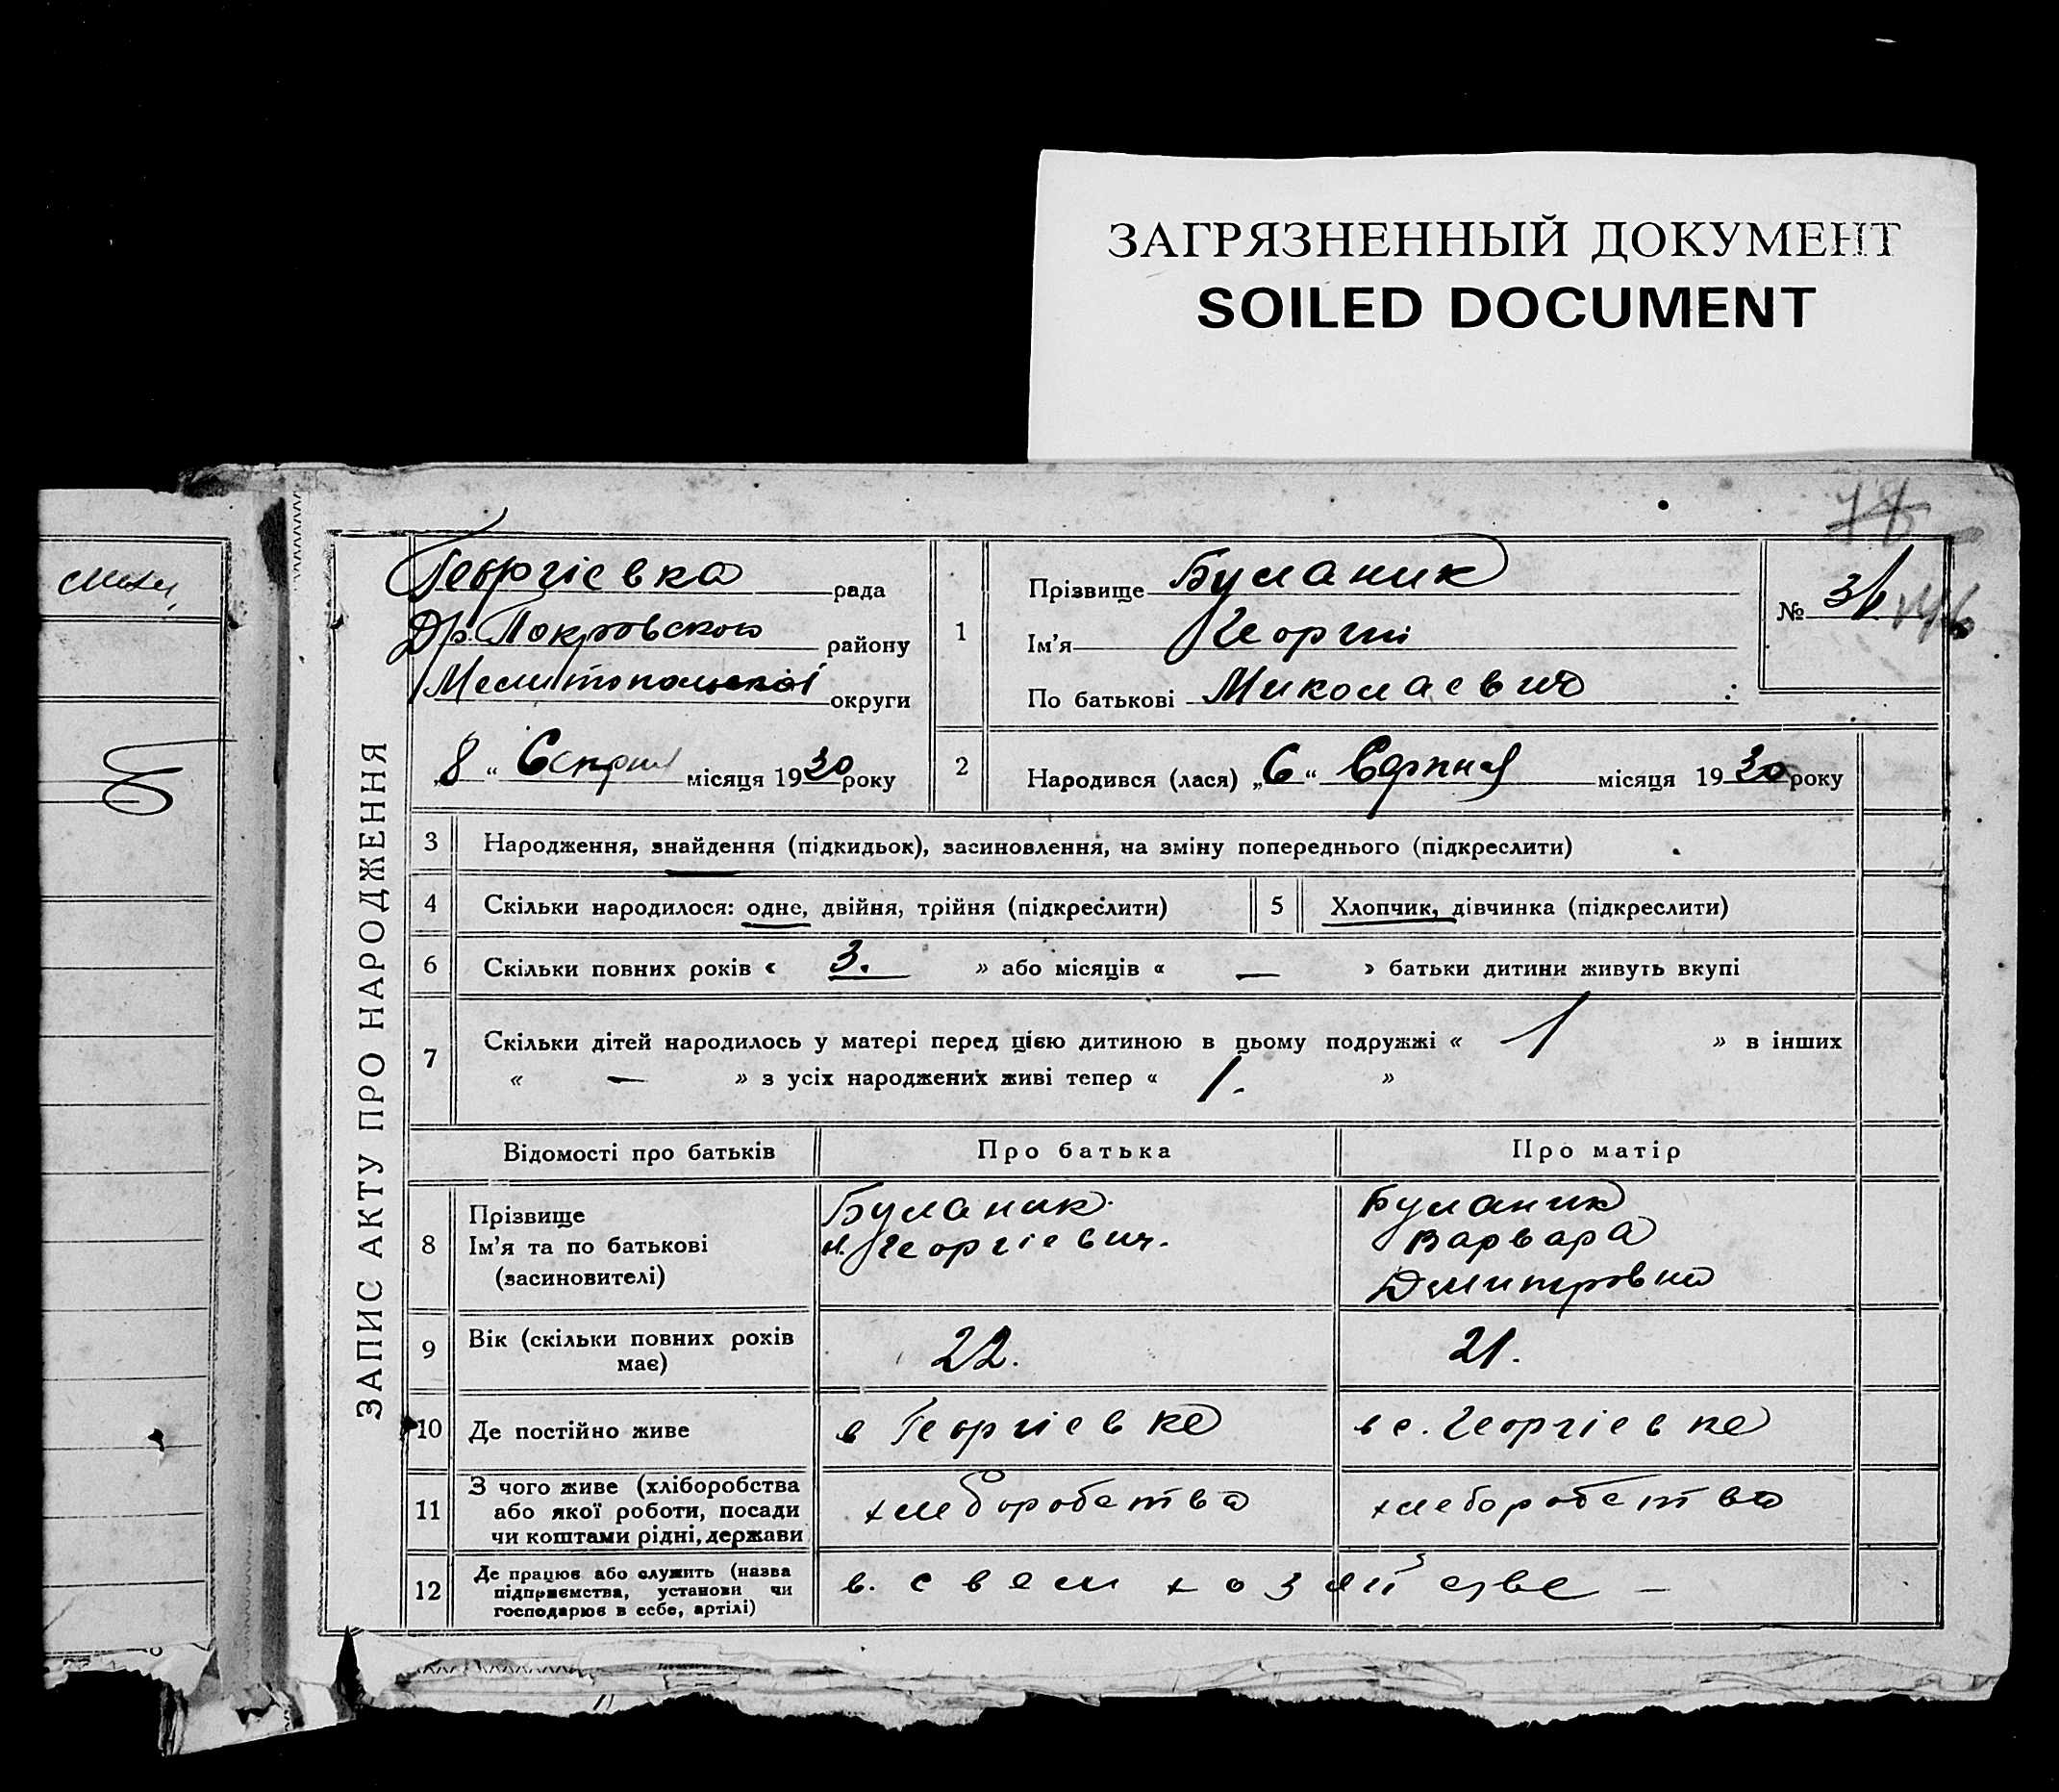 ЗАГРЯЗНЕННЫЙ ДОКУМЕНТ
SOILED DOCUMENT
ЗАПИС АКТУ ПРО НАРОДЖЕННЯ
Георгієвка рада
Покровского району
Мелитопольської округи
„8“ місяця 1930 року
1 Прізвище Буланик
Ім'я Георгій
По батькові Миколаевич :
№
2 Народився (лася) „6“ Серпня місяця 1930 року
3 Народження, знайдення (підкидьок), засиновлення, на зміну попереднього (підкреслити)
4 Скільки народилося: одне, двійня, трійня (підкреслити) 5 Хлопчик, дівчинка (підкреслити)
6 Скільки повних років « 3. » або місяців « — » батьки дитини живуть вкупі
7 Скільки дітей народилось у матері перед цією дитиною в цьому подружжі « 1 » в інших
« — » з усіх народжених живі тепер « 1. »
Відомості про батьків Про батька Про матір
8 Прізвище
Ім'я та по батькові
(засиновителі)
Буланик
Н. Георгіевич.
Буланик
Варвара
Дмитровна
9 Вік (скільки повних рохів
має)
22. 21.
10 Де постійно живе в Георгіевке в с. Георгіевке
11 З чого живе (хліборобства
або якої роботи, посади
чи коштами рідні, держави
хлеборобства хлеборобства
12 Де працює або служить (назва
підприємства, установи чи
господарює в себе, артілі)
в. своем хозяйстве —